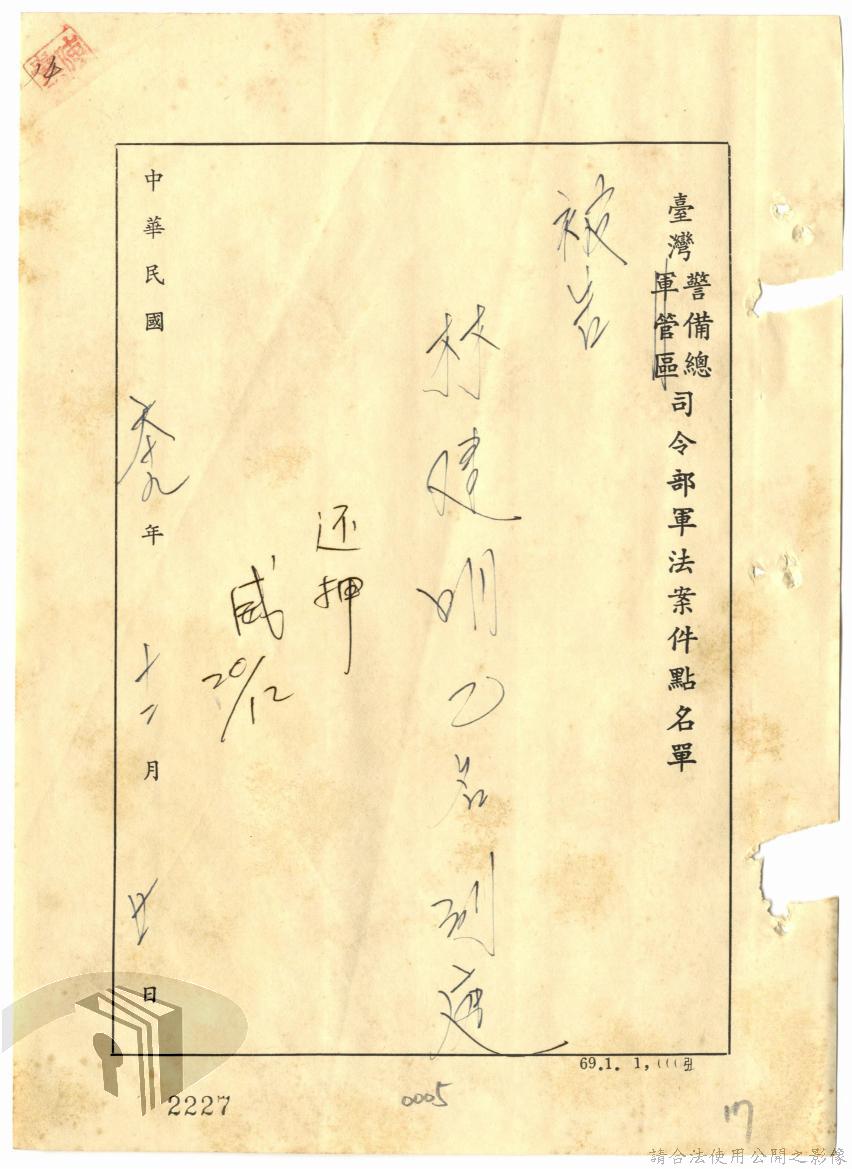 臺灣警備總軍管區司令部軍法案件點名單
被告
林建明乙名到庭
还押
威
20/12
中華民國 六十九年 十二月 廿日
69.1. 1,
2227
0005
17
請合法使用公開之影像